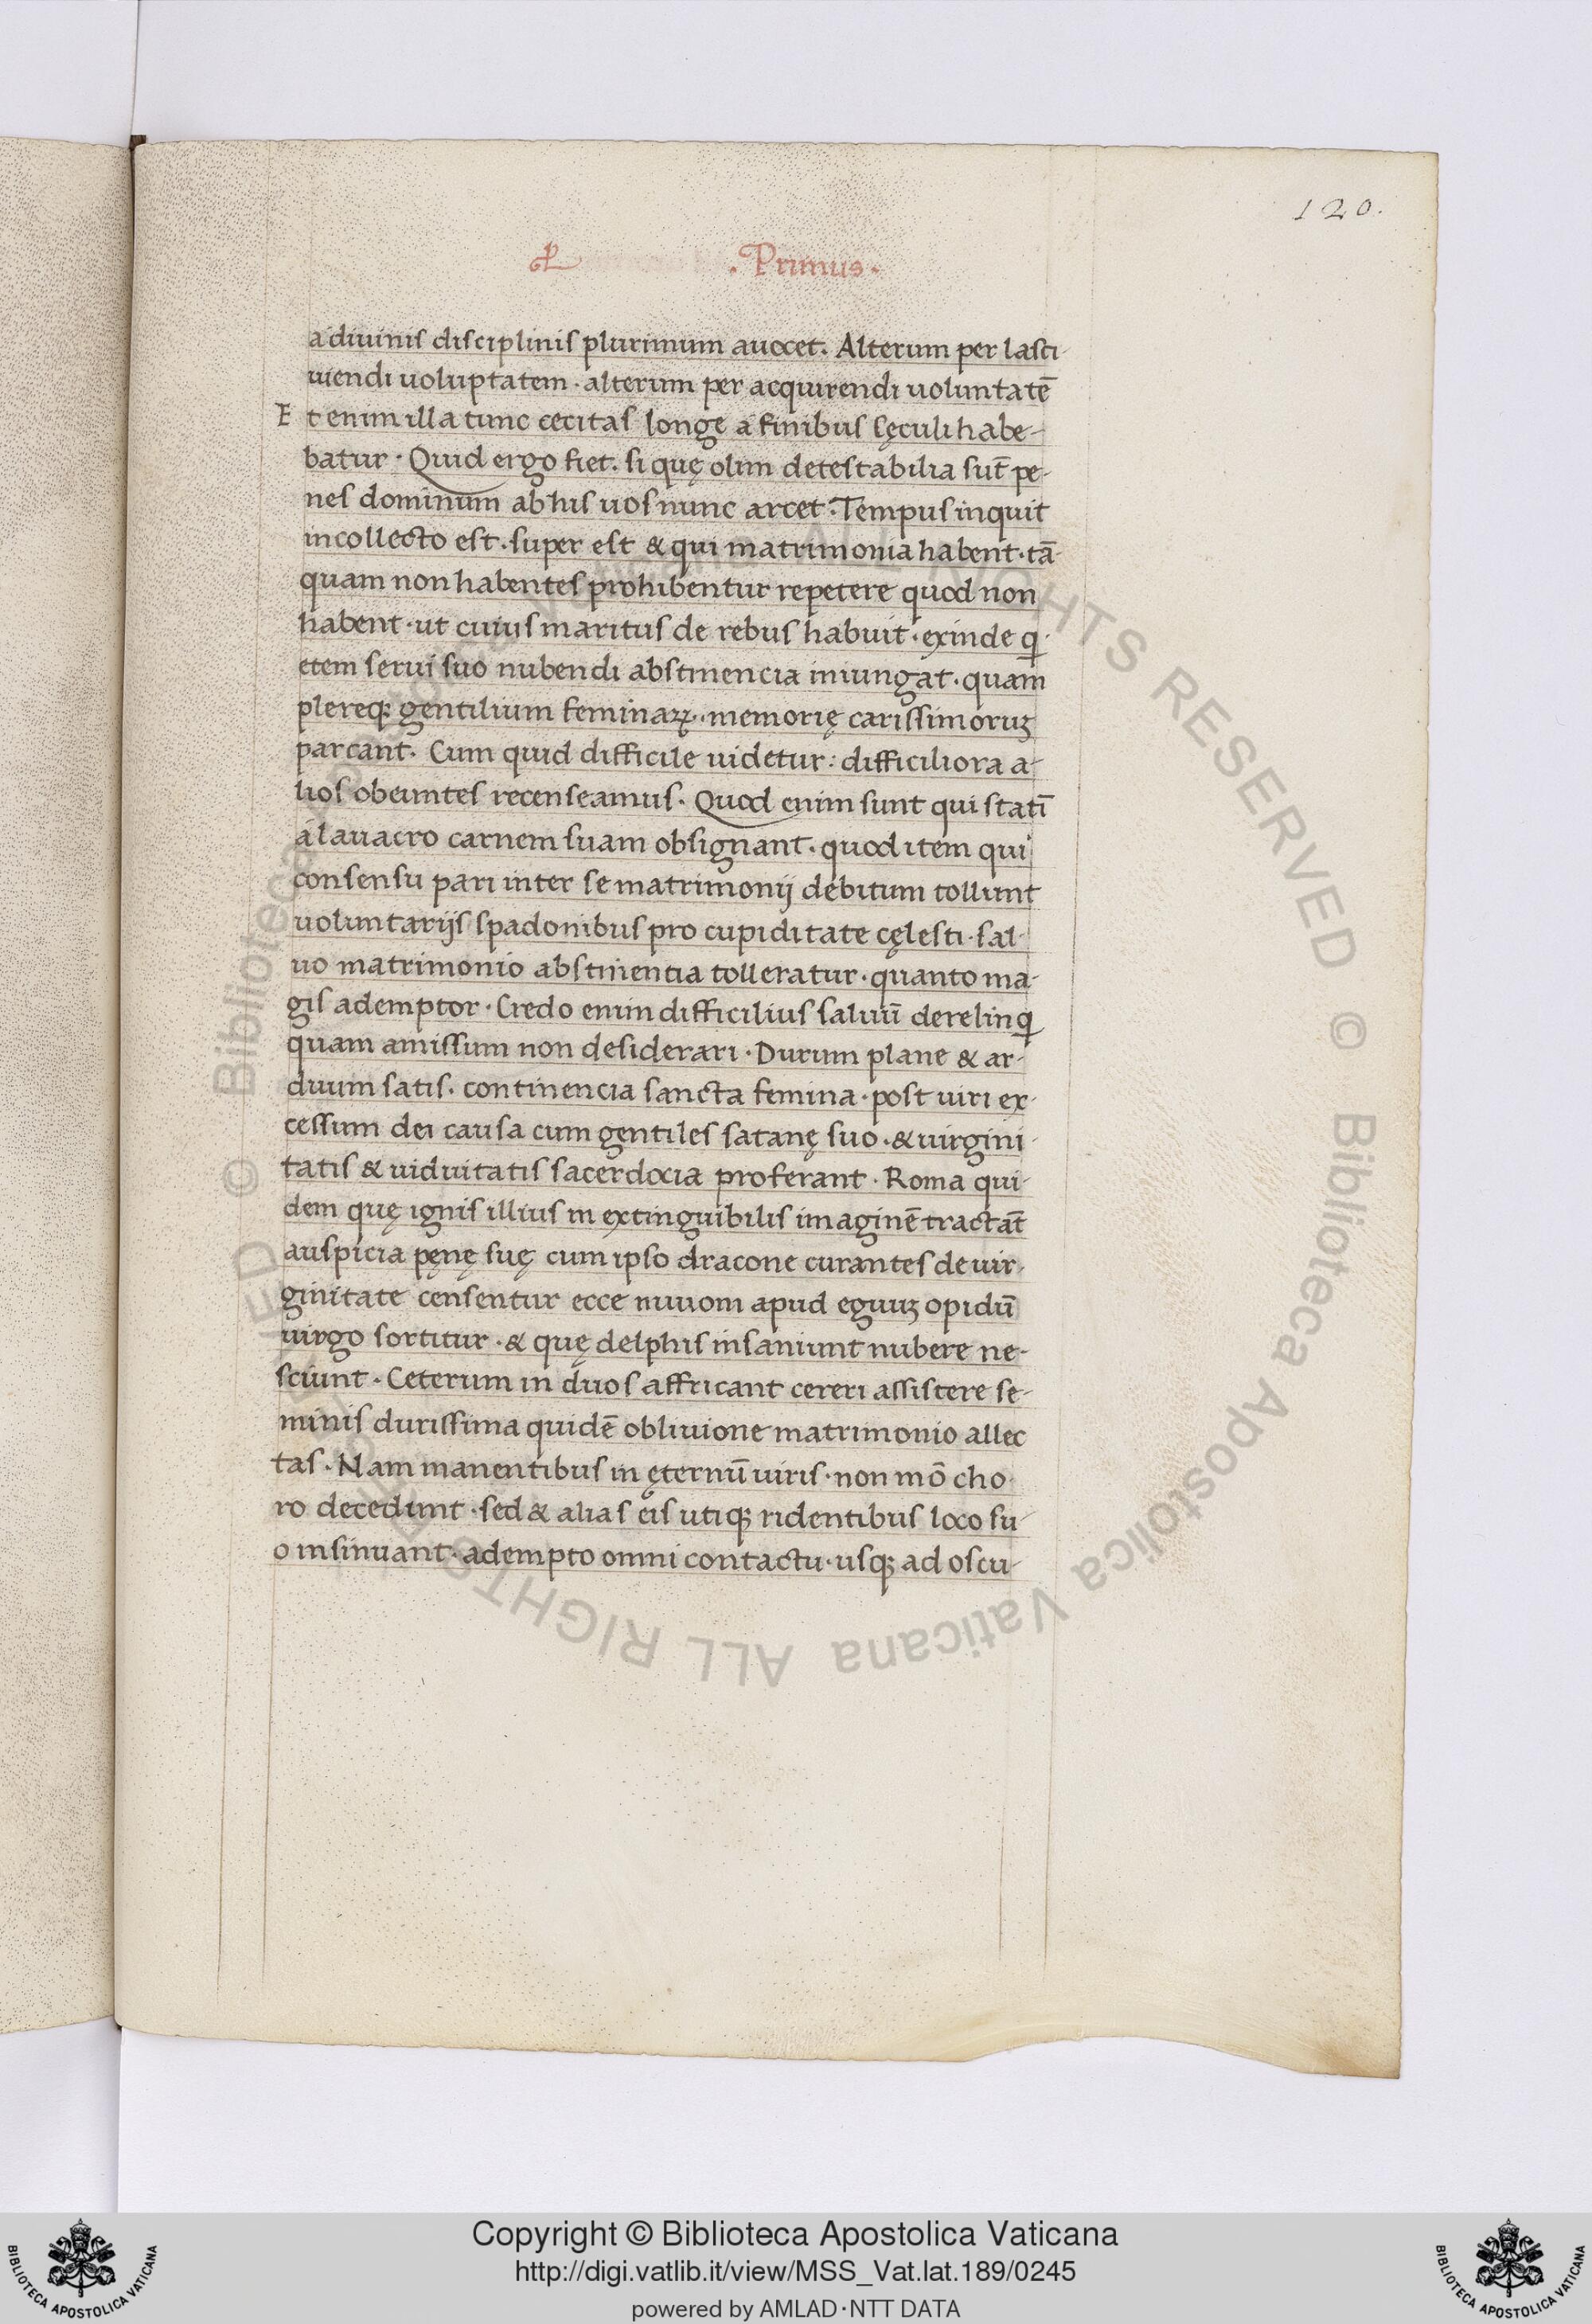 120.
. Primus .
a diuinis disciplinis plurimum auocet. Alterum per lasci-
uiendi uoluptatem · alterum per acquirendi uoluntatē
Et enim illa tunc cecitas longe a finibus sęculi habe-
batur · Quid ergo fiet. si quę olim detestabilia sūt pe-
nes dominum ab his uos nunc arcet · Tempus inquit
incollecto est · super est & qui matrimonia habent · tā-
quam non habentes prohibentur repetere quod non
habent · ut cuius maritus de rebus habuit · exinde qi-
etem serui suo nubendi abstinencia iniungat · quam
plereqꝫ gentilium feminaꝝ · memorię carissimoruꝫ
parcant. Cum quid difficile uidetur: difficiliora a-
lios obeuntes recenseamus. Quod enim sunt qui statī
a lauacro carnem suam obsignant · quod item qui
consensu pari inter se matrimonij debitum tollunt
uoluntarijs spadonibus pro cupiditate cęlesti · sal-
uo matrimonio abstinentia tolleratur · quanto ma-
gis ademptor · Credo enim difficilius saluū derelinqi
quam amissum non desiderari · Durum plane & ar-
duum satis. continencia sancta femina · post uiri ex-
cessum dei causa cum gentiles satanę suo · & uirgini-
tatis & uiduitatis sacerdocia proferant · Roma qui-
dem quę ignis illius in extinguibilis imaginē tractāt
auspicia pęnę suę cum ipso dracone curantes de uir-
ginitate censentur ecce nuuoni apud eguuꝫ opidū
uirgo sortitur · & quę delphis insaniunt nubere ne-
sciunt · Ceterum in duos affricant cereri assistere se-
minis durissima quidē obliuione matrimonio allec
tas · Nam manentibus in ęternū uiris · non mō cho-
ro decedunt · sed & alias eis utiqꝫ ridentibus loco su-
o insinuant · adempto omni contactu · usqꝫ ad oscu-
© Biblioteca Apostolica Vaticana ALL RIGHTS RESERVED © Biblioteca Apostolica Vaticana ALL RIGHTS RESERVED
Copyright © Biblioteca Apostolica Vaticana
http://digi.vatlib.it/view/MSS_Vat.lat.189/0245
powered by AMLAD·NTT DATA
BIBLIOTECA APOSTOLICA VATICANA
BIBLIOTECA APOSTOLICA VATICANA